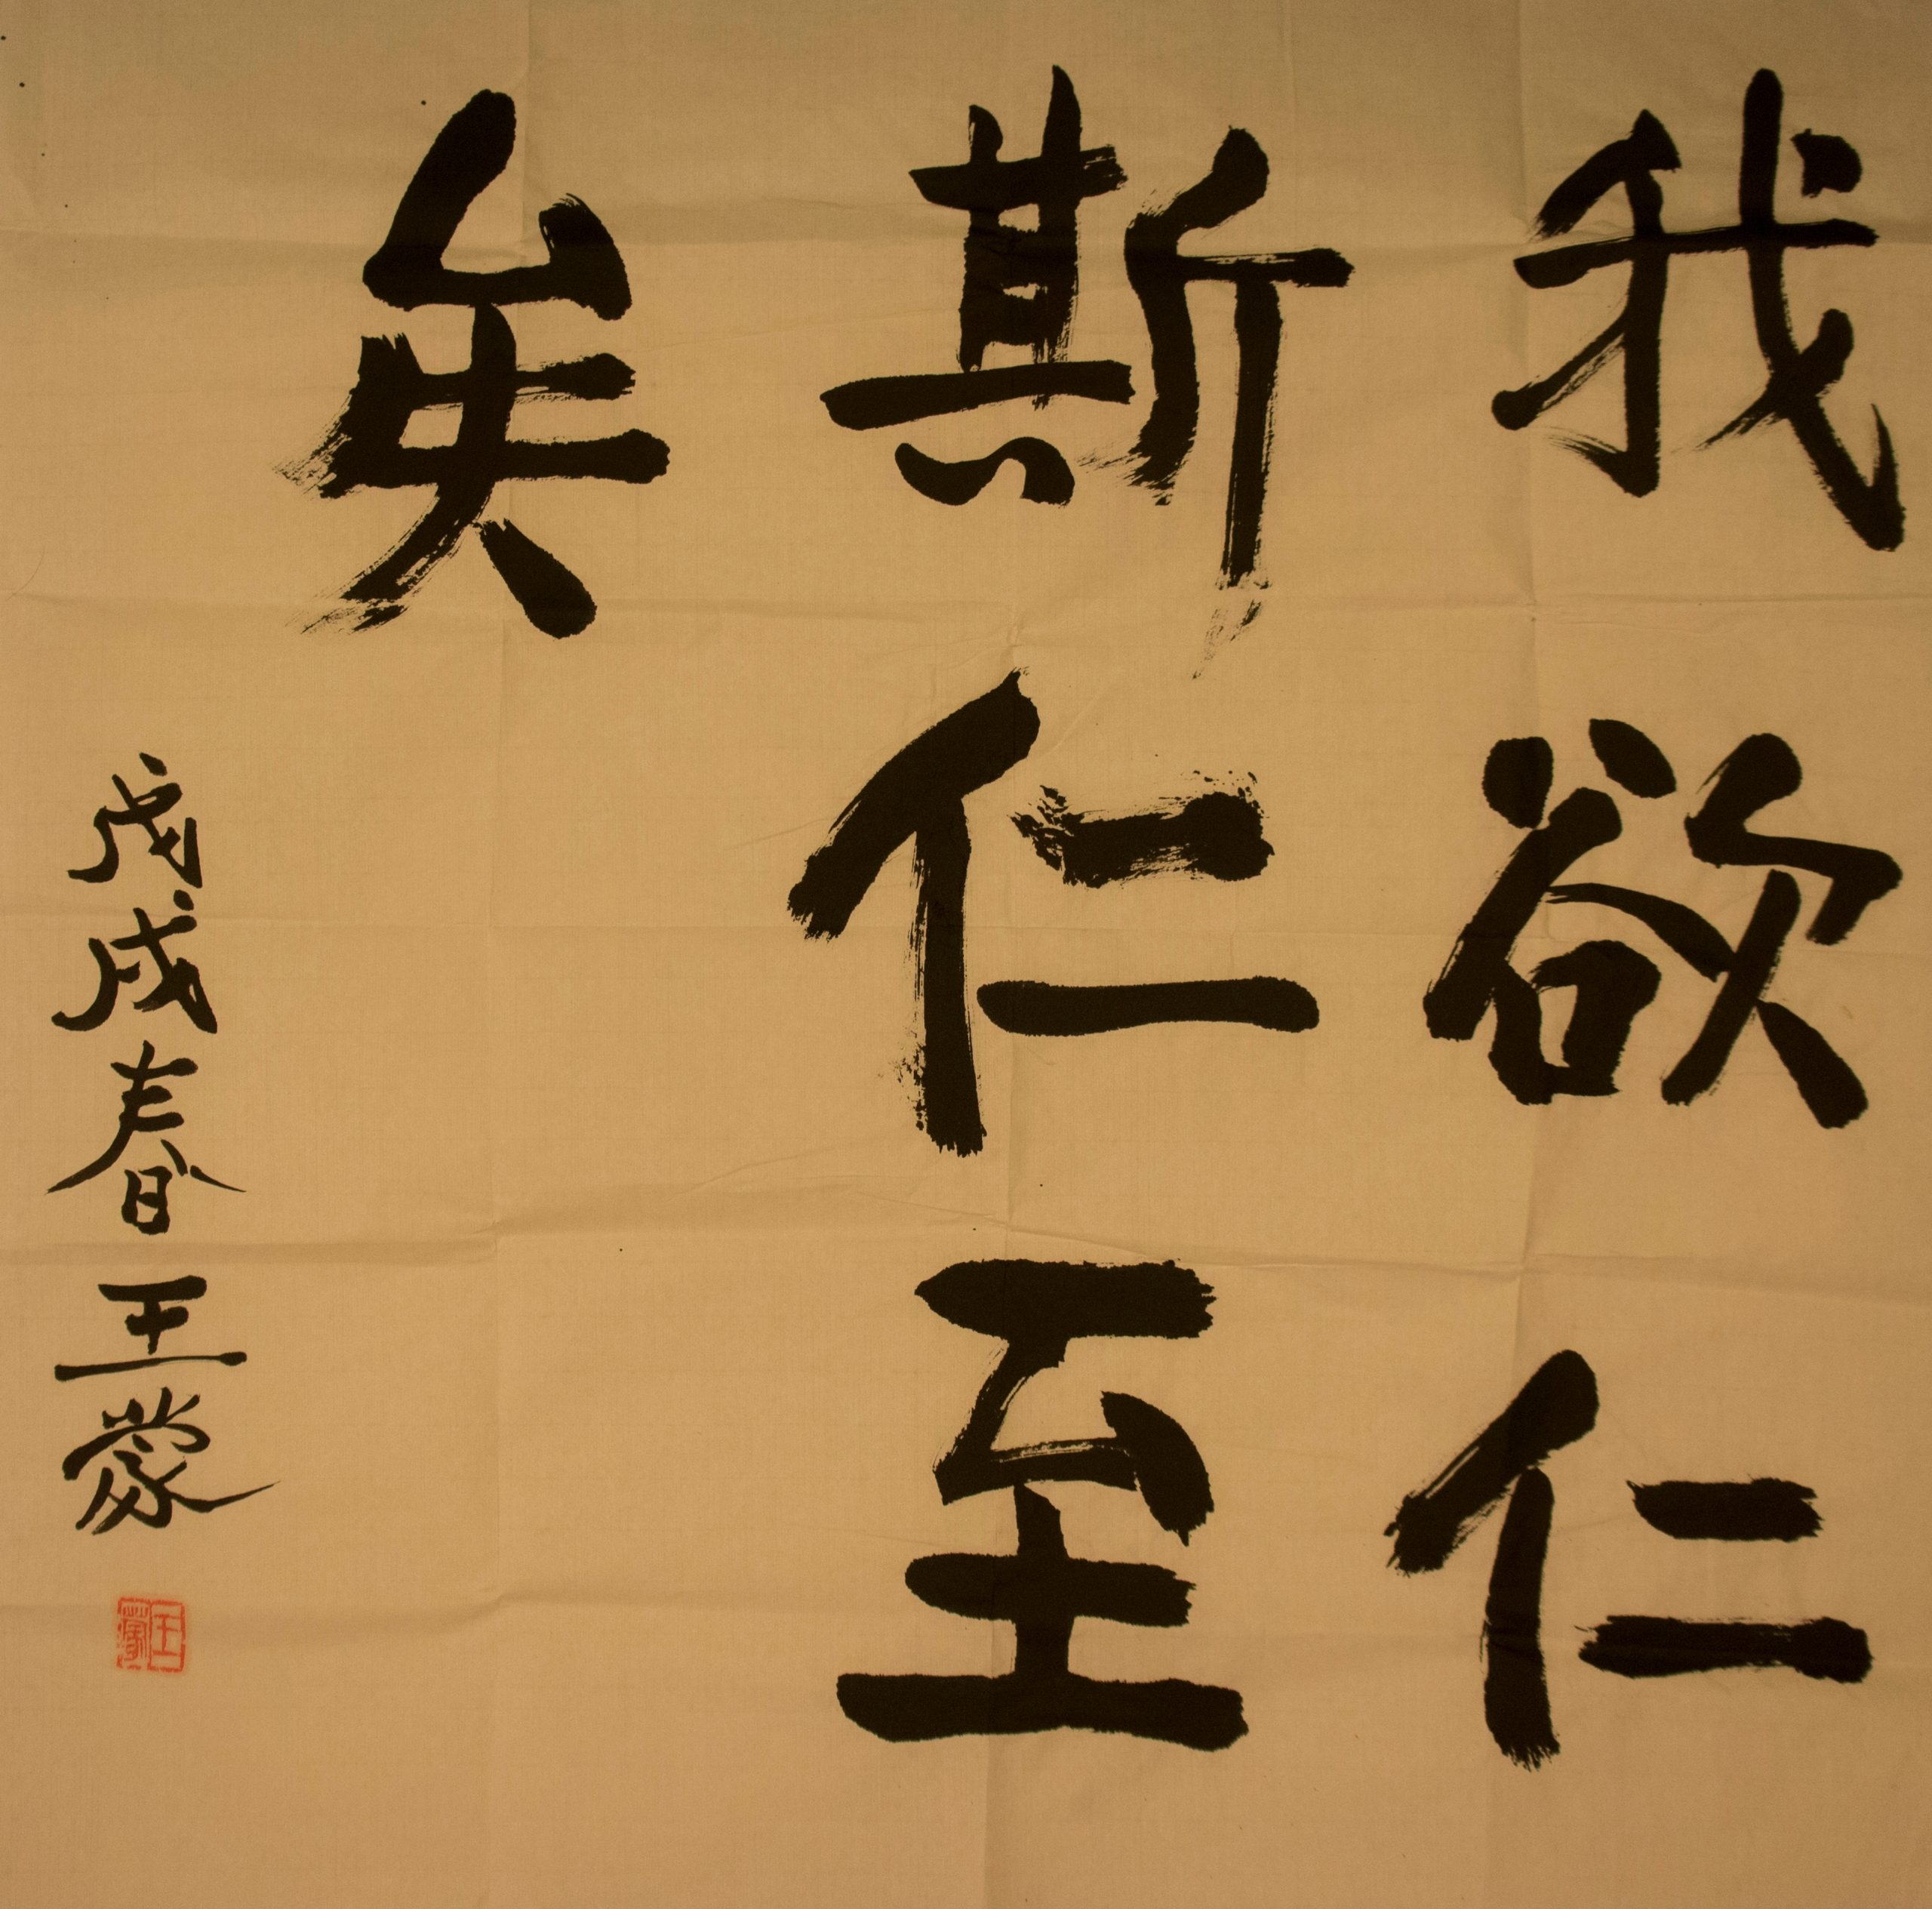 我欲仁
斯仁至
矣
戊戌春王蒙
王蒙